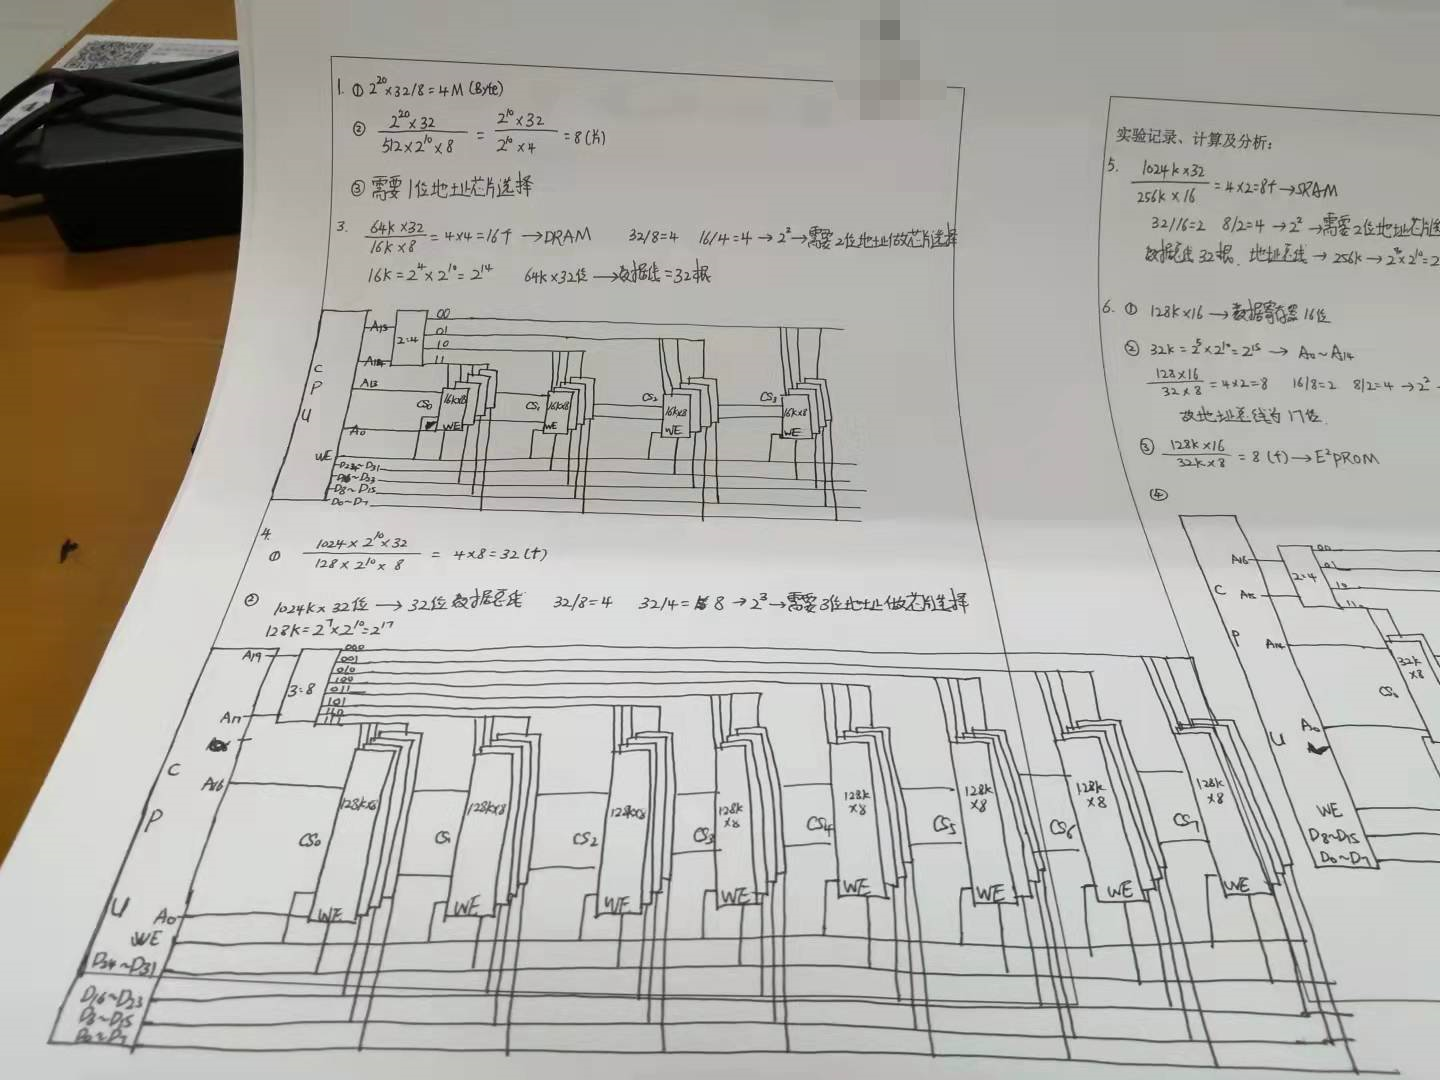 1. ① 2^20×32/8=4M (Byte)
② 2^20×32 / 512×2^10×8 = 2^10×32 / 2^10×4 = 8(片)
③ 需要1位地址芯片选择
3. 64k×32 / 16k×8 = 4×4=16个 →DRAM 32/8=4 16/4=4 → 2^2→需要2位地址做芯片选择
16k=2^4×2^10=2^14 64k×32位 →数据线=32根
C
P
U
A15
A14
A13
A0
WE
D24~D31
D16~D23
D8~D15
D0~D7
2:4
00
01
10
11
CS0
16k×8
WE
CS1
16k×8
WE
CS2
16k×8
WE
CS3
16k×8
WE
4.
① 1024×2^10×32 / 128×2^10×8 = 4×8=32(个)
② 1024k×32位 → 32位数据总线 32/8=4 32/4=8 → 2^3→需要3位地址做芯片选择
128k=2^7×2^10=2^17
C
P
U
A19
A17
A16
A0
WE
D24~D31
D16~D23
D8~D15
D0~D7
3:8
000
001
010
100
011
101
110
111
CS0
128k×8
WE
CS1
128k×8
WE
CS2
128k×8
WE
CS3
128k
×8
WE
CS4
128k
×8
WE
CS5
128k
×8
WE
CS6
128k
×8
WE
CS7
128k
×8
WE
实验记录、计算及分析:
5. 1024k×32 / 256k×16 = 4×2=8个→SRAM
32/16=2 8/2=4 → 2^2 →需要2位地址芯片选
数据总线32根、地址总线 → 256k→2^8×2^10=2
6. ① 128k×16 →数据寄存器16位
② 32k=2^5×2^10=2^15 → A0~A14
128×16 / 32×8 = 4×2=8 16/8=2 8/2=4 →2^2
故地址总线为17位.
③ 128k×16 / 32k×8 = 8(个)→E^2PROM
④
C
P
U
A16
A15
A14
A0
WE
D8~D15
D0~D7
2:4
00
01
10
11
32k
×8
CS0